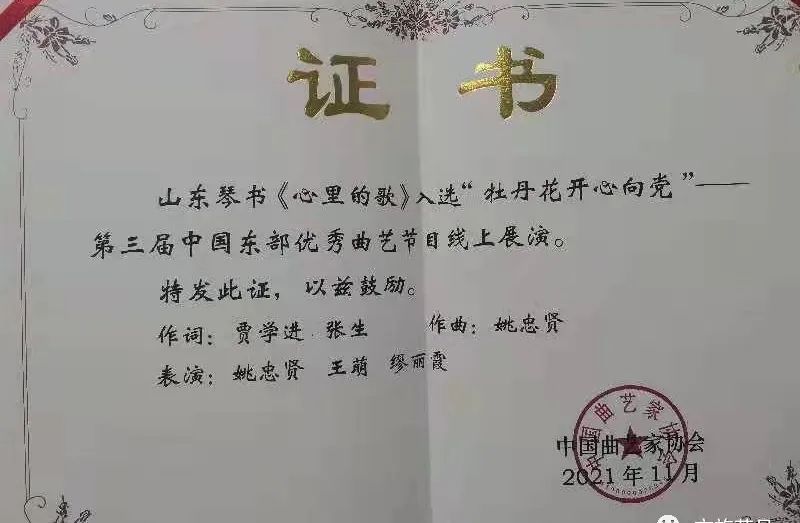 证书
山东琴书《心里的歌》入选“牡丹花开心向党”——
第三届中国东部优秀曲艺节目线上展演。
特发此证，以兹鼓励。
作词：贾学进 张生 作曲：姚忠贤
表演：姚忠贤 王萌 缪丽霞
中国曲艺家协会
中国曲艺家协会
2021年11月